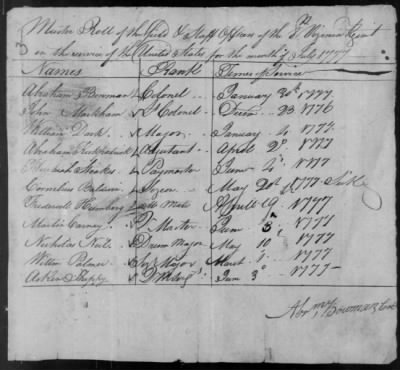 Muster Roll of the Field & Staff Officers of the 8th Virginia Regiment
in the service of the United States for the month of July 1777
Names Rank Times of Service
Abraham Bowman Colonel January 30th 1777
John Markham Lt Colonel June 23 1776
William Dark Major January 4 1777
Abraham Kirkpatrick Adjutant April 2d 1777
Paymaster June 4th 1777
Cornelius Baldwin May 20th 1777 Sick
Frederick April 19 1777
Martin Carney Qr Master June 5th 1777
Nicholas Drum Major May 10th 1777
Palmer Major March 1777
June 3d 1777
Abrm Bowman Col